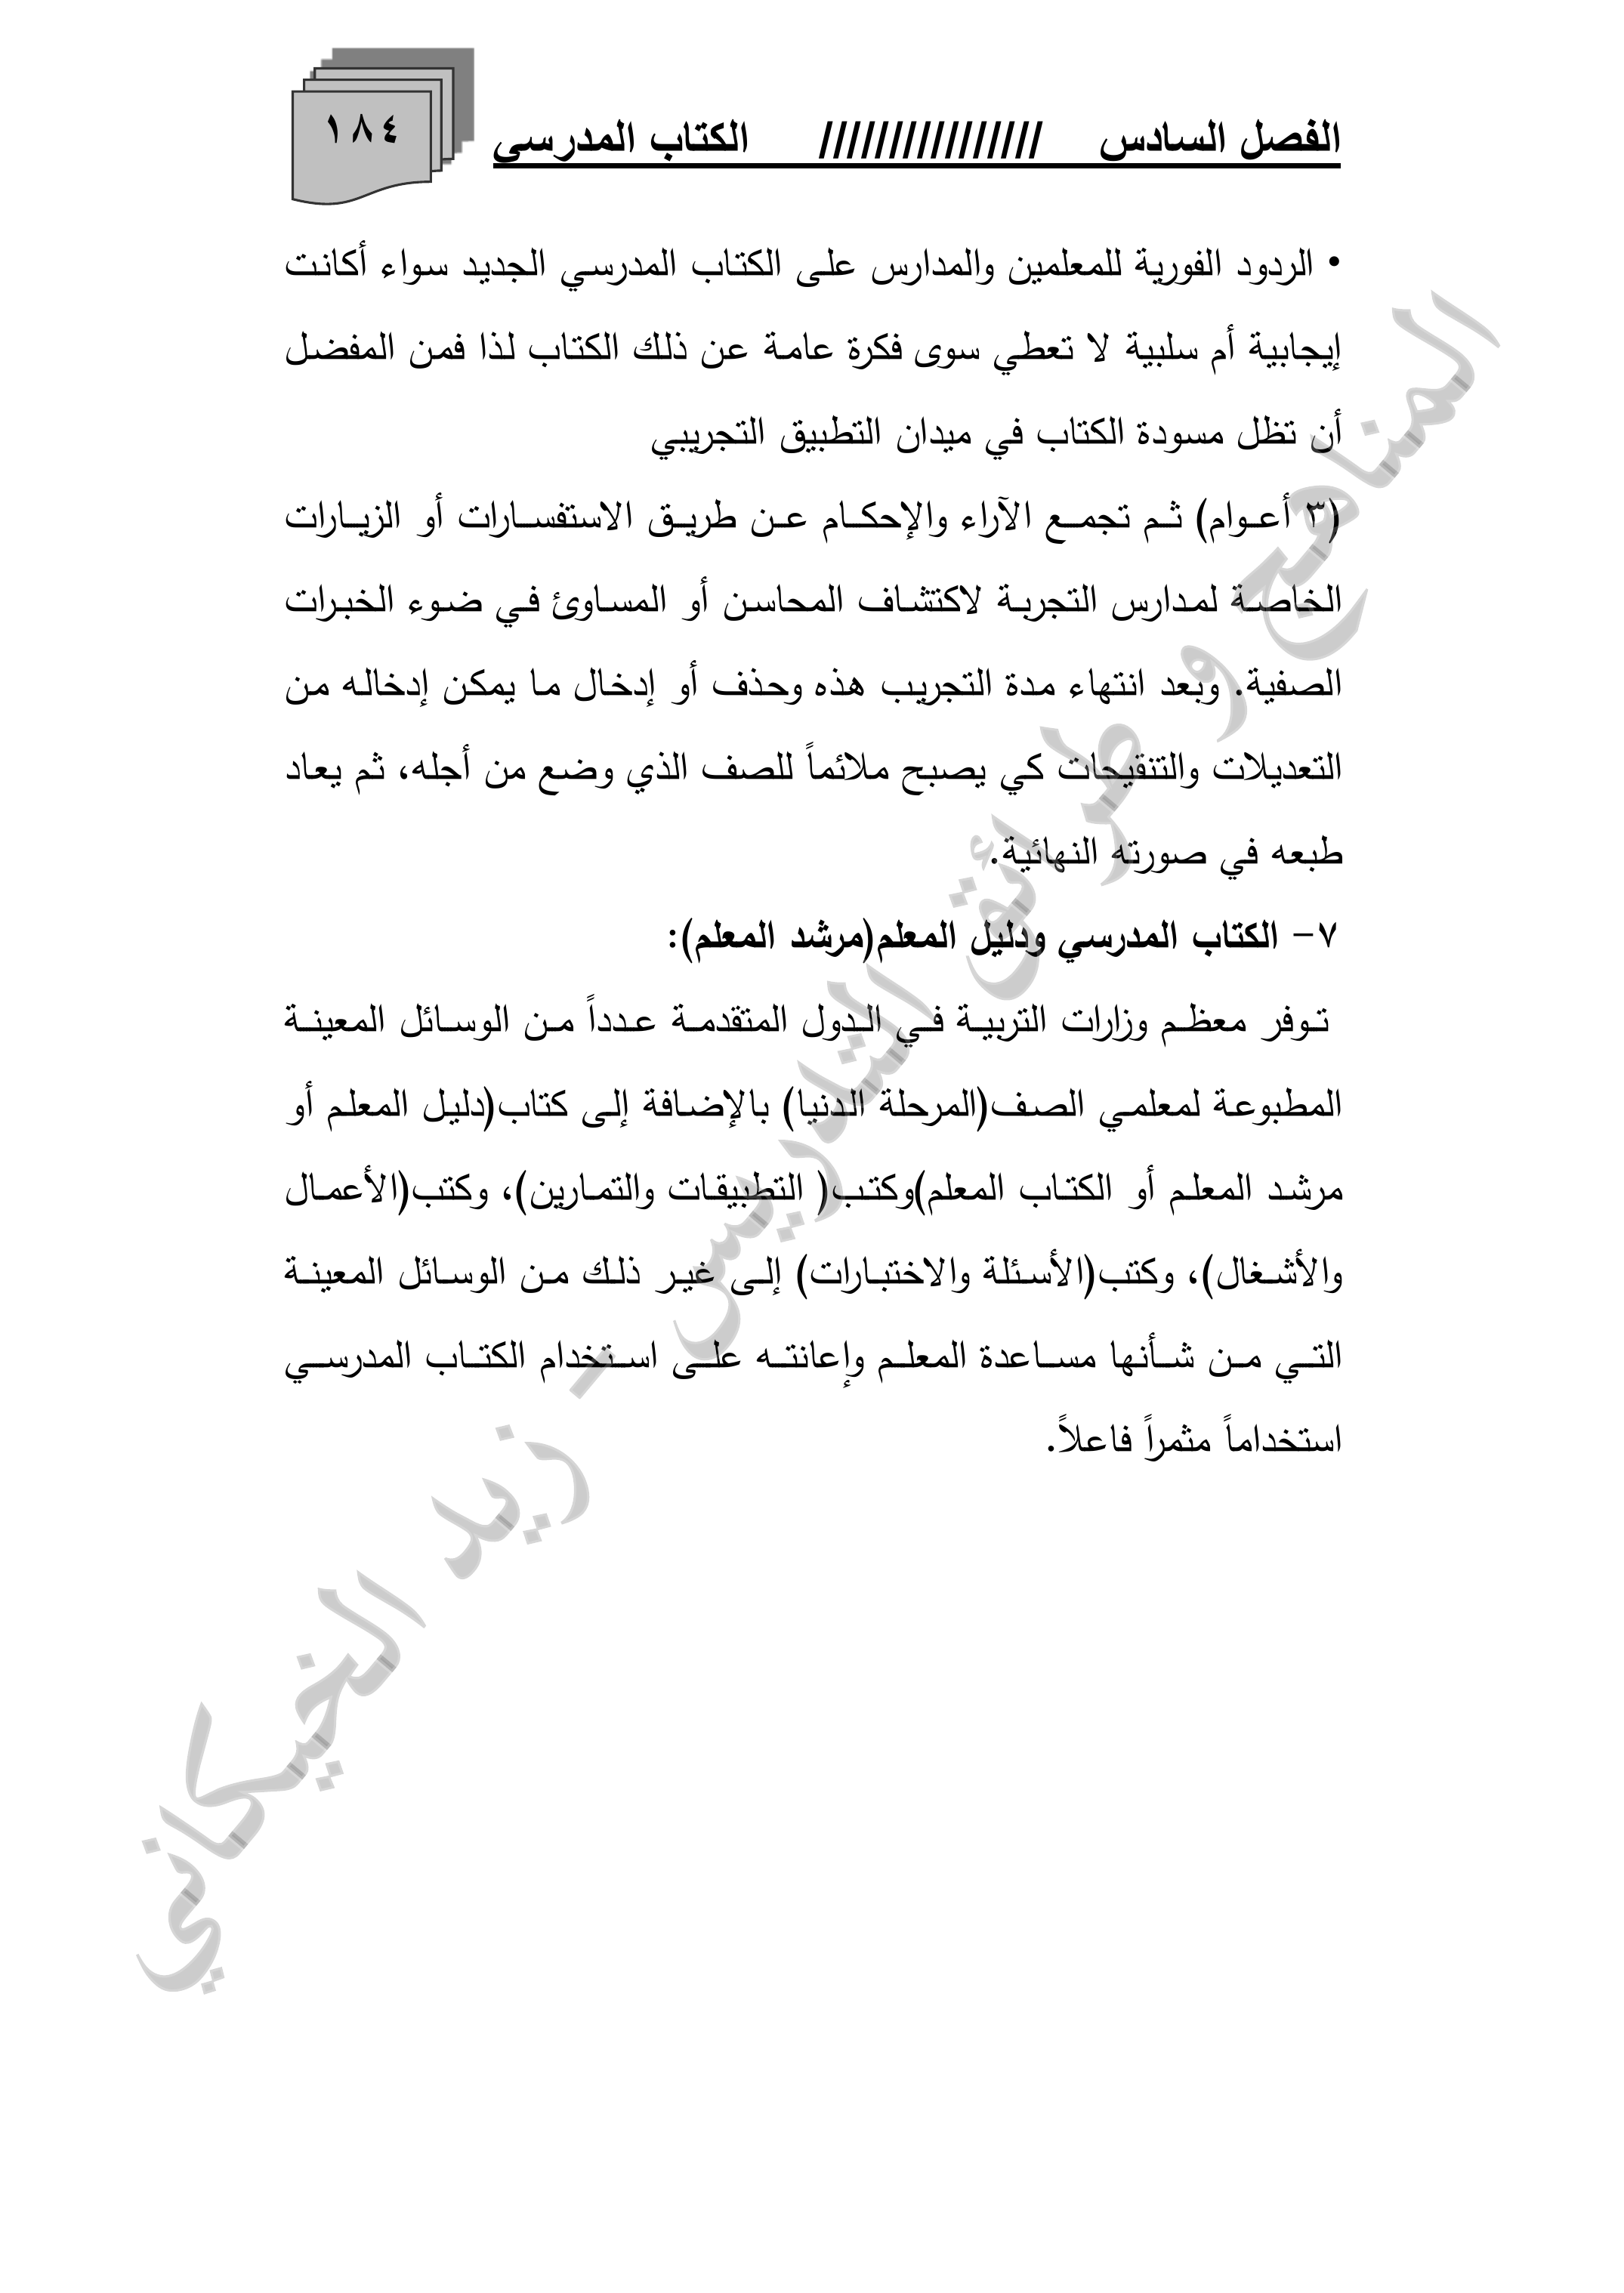 الفصل السادس //////////////// الكتاب المدرسي
١٨٤
• الردود الفورية للمعلمين والمدارس على الكتاب المدرسي الجديد سواء أكانت
إيجابية أم سلبية لا تعطي سوى فكرة عامة عن ذلك الكتاب لذا فمن المفضل
أن تظل مسودة الكتاب في ميدان التطبيق التجريبي
(٣ أعوام) ثم تجمع الآراء والإحكام عن طريق الاستفسارات أو الزيارات
الخاصة لمدارس التجربة لاكتشاف المحاسن أو المساوئ في ضوء الخبرات
الصفية. وبعد انتهاء مدة التجريب هذه وحذف أو إدخال ما يمكن إدخاله من
التعديلات والتنقيحات كي يصبح ملائماً للصف الذي وضع من أجله، ثم يعاد
طبعه في صورته النهائية.
٧- الكتاب المدرسي ودليل المعلم(مرشد المعلم):
توفر معظم وزارات التربية في الدول المتقدمة عدداً من الوسائل المعينة
المطبوعة لمعلمي الصف(المرحلة الدنيا) بالإضافة إلى كتاب(دليل المعلم أو
مرشد المعلم أو الكتاب المعلم)وكتب( التطبيقات والتمارين)، وكتب(الأعمال
والأشغال)، وكتب(الأسئلة والاختبارات) إلى غير ذلك من الوسائل المعينة
التي من شأنها مساعدة المعلم وإعانته على استخدام الكتاب المدرسي
استخداماً مثمراً فاعلاً.
المناهج و طرائق التدريس - زيد الخيكاني